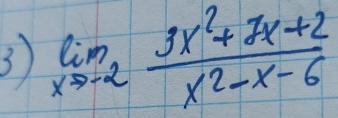 3) lim x→-2 (3x²+7x+2)/(x²-x-6)